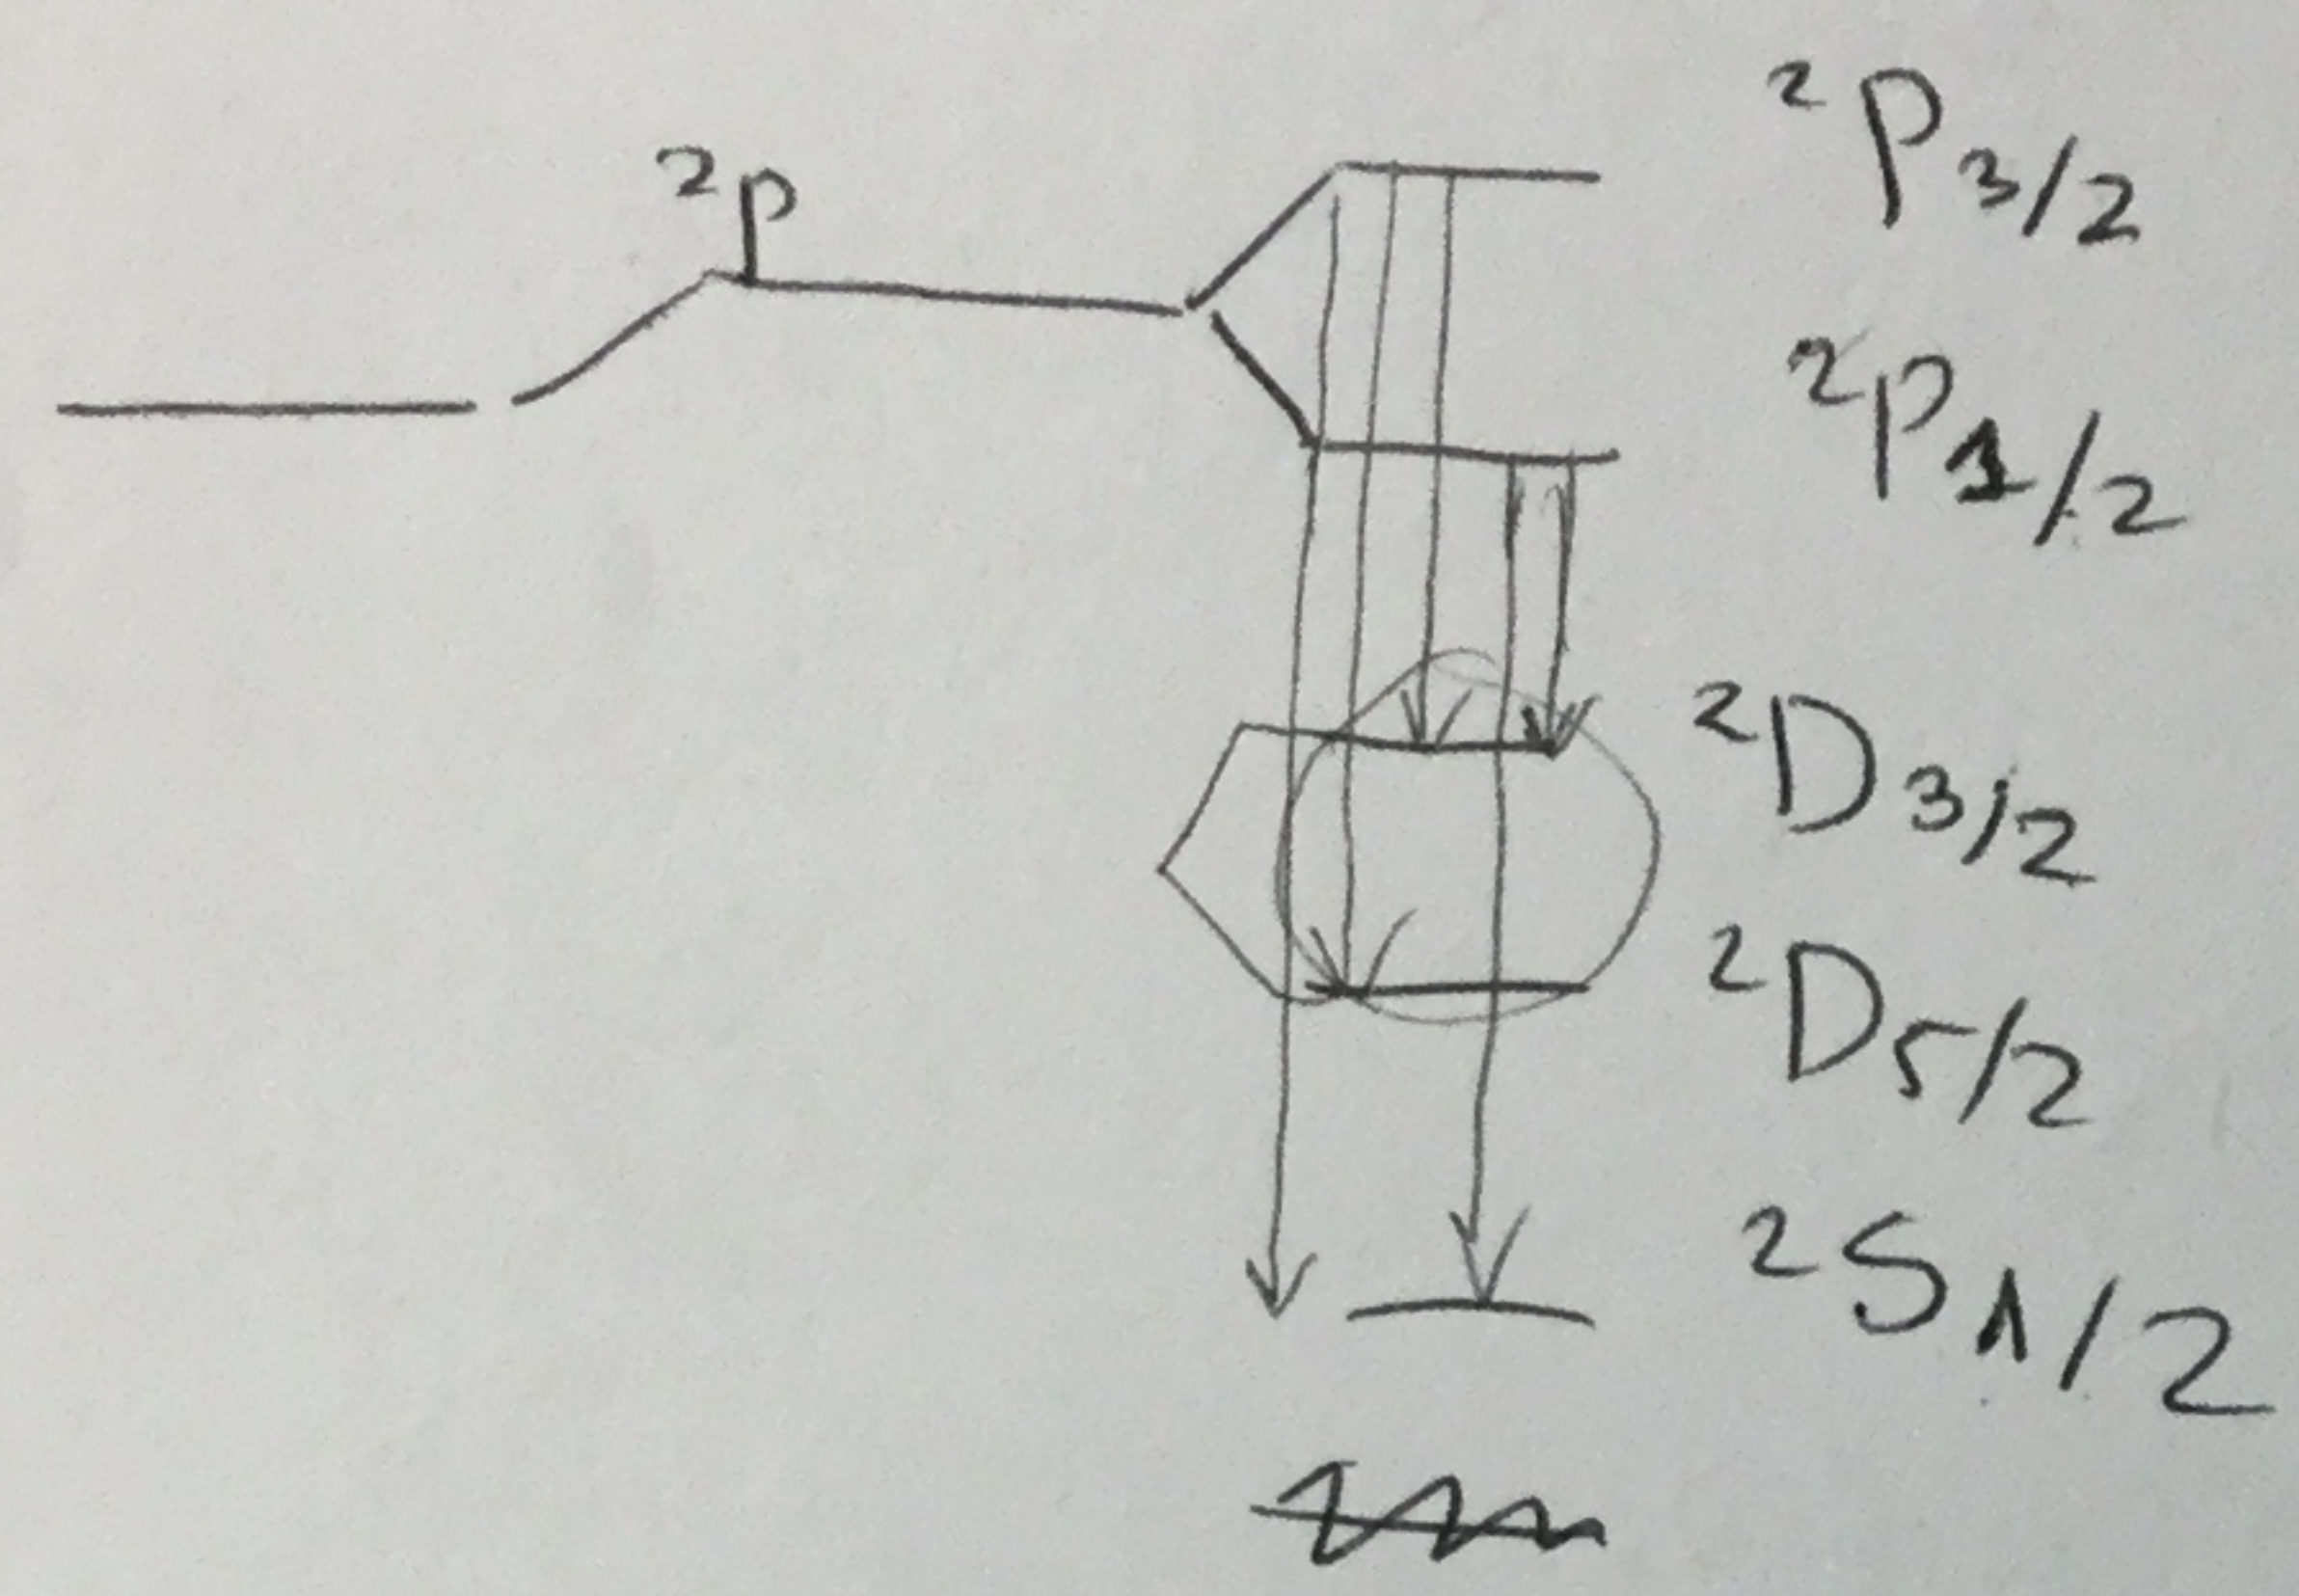 ²P3/2
²P
²P1/2
²D3/2
²D5/2
²S1/2